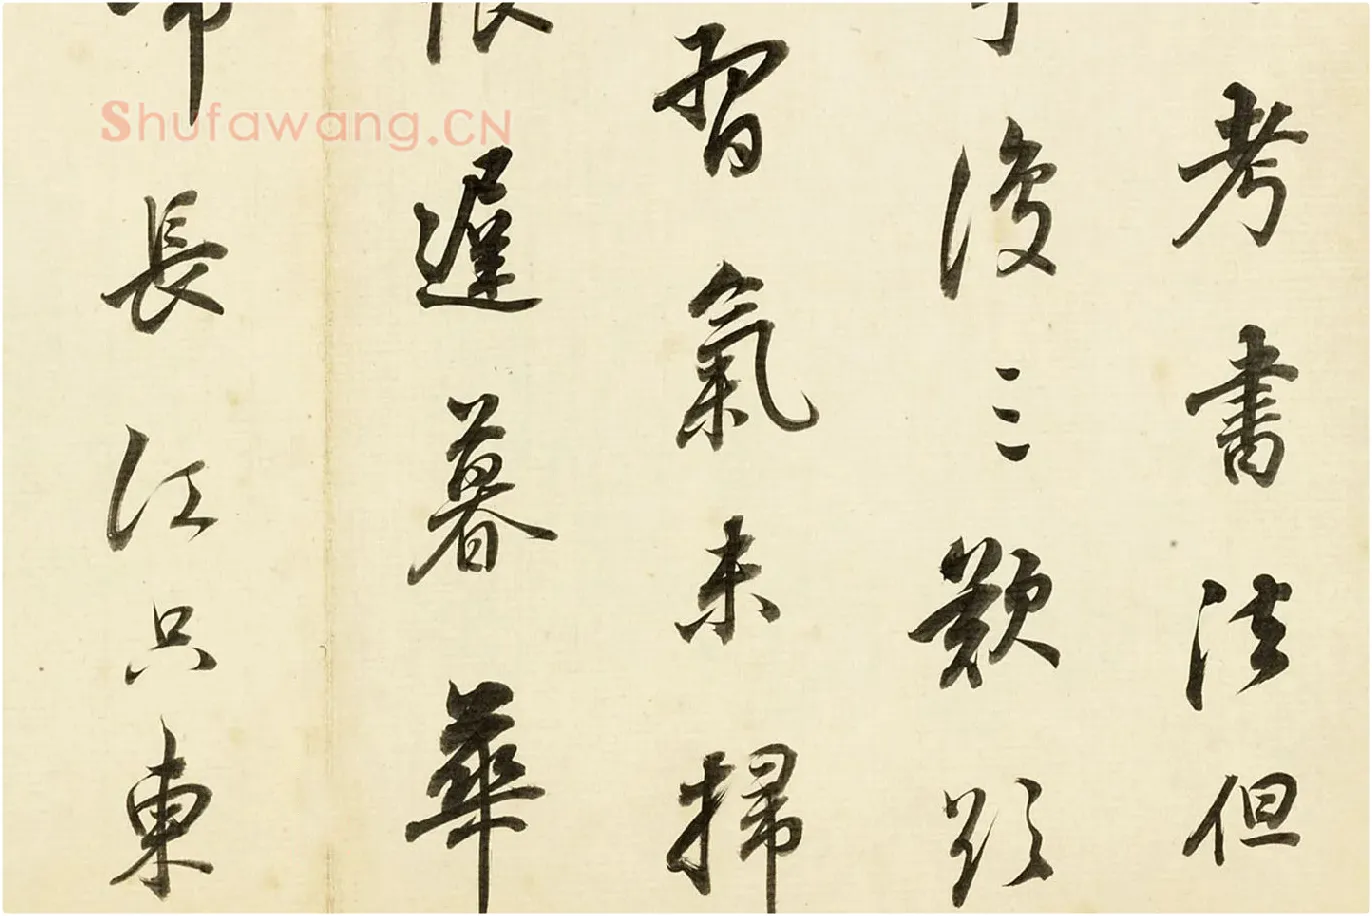 考書法但
復三歎
習氣未掃
遲暮華
長江只東
Shufawang.CN